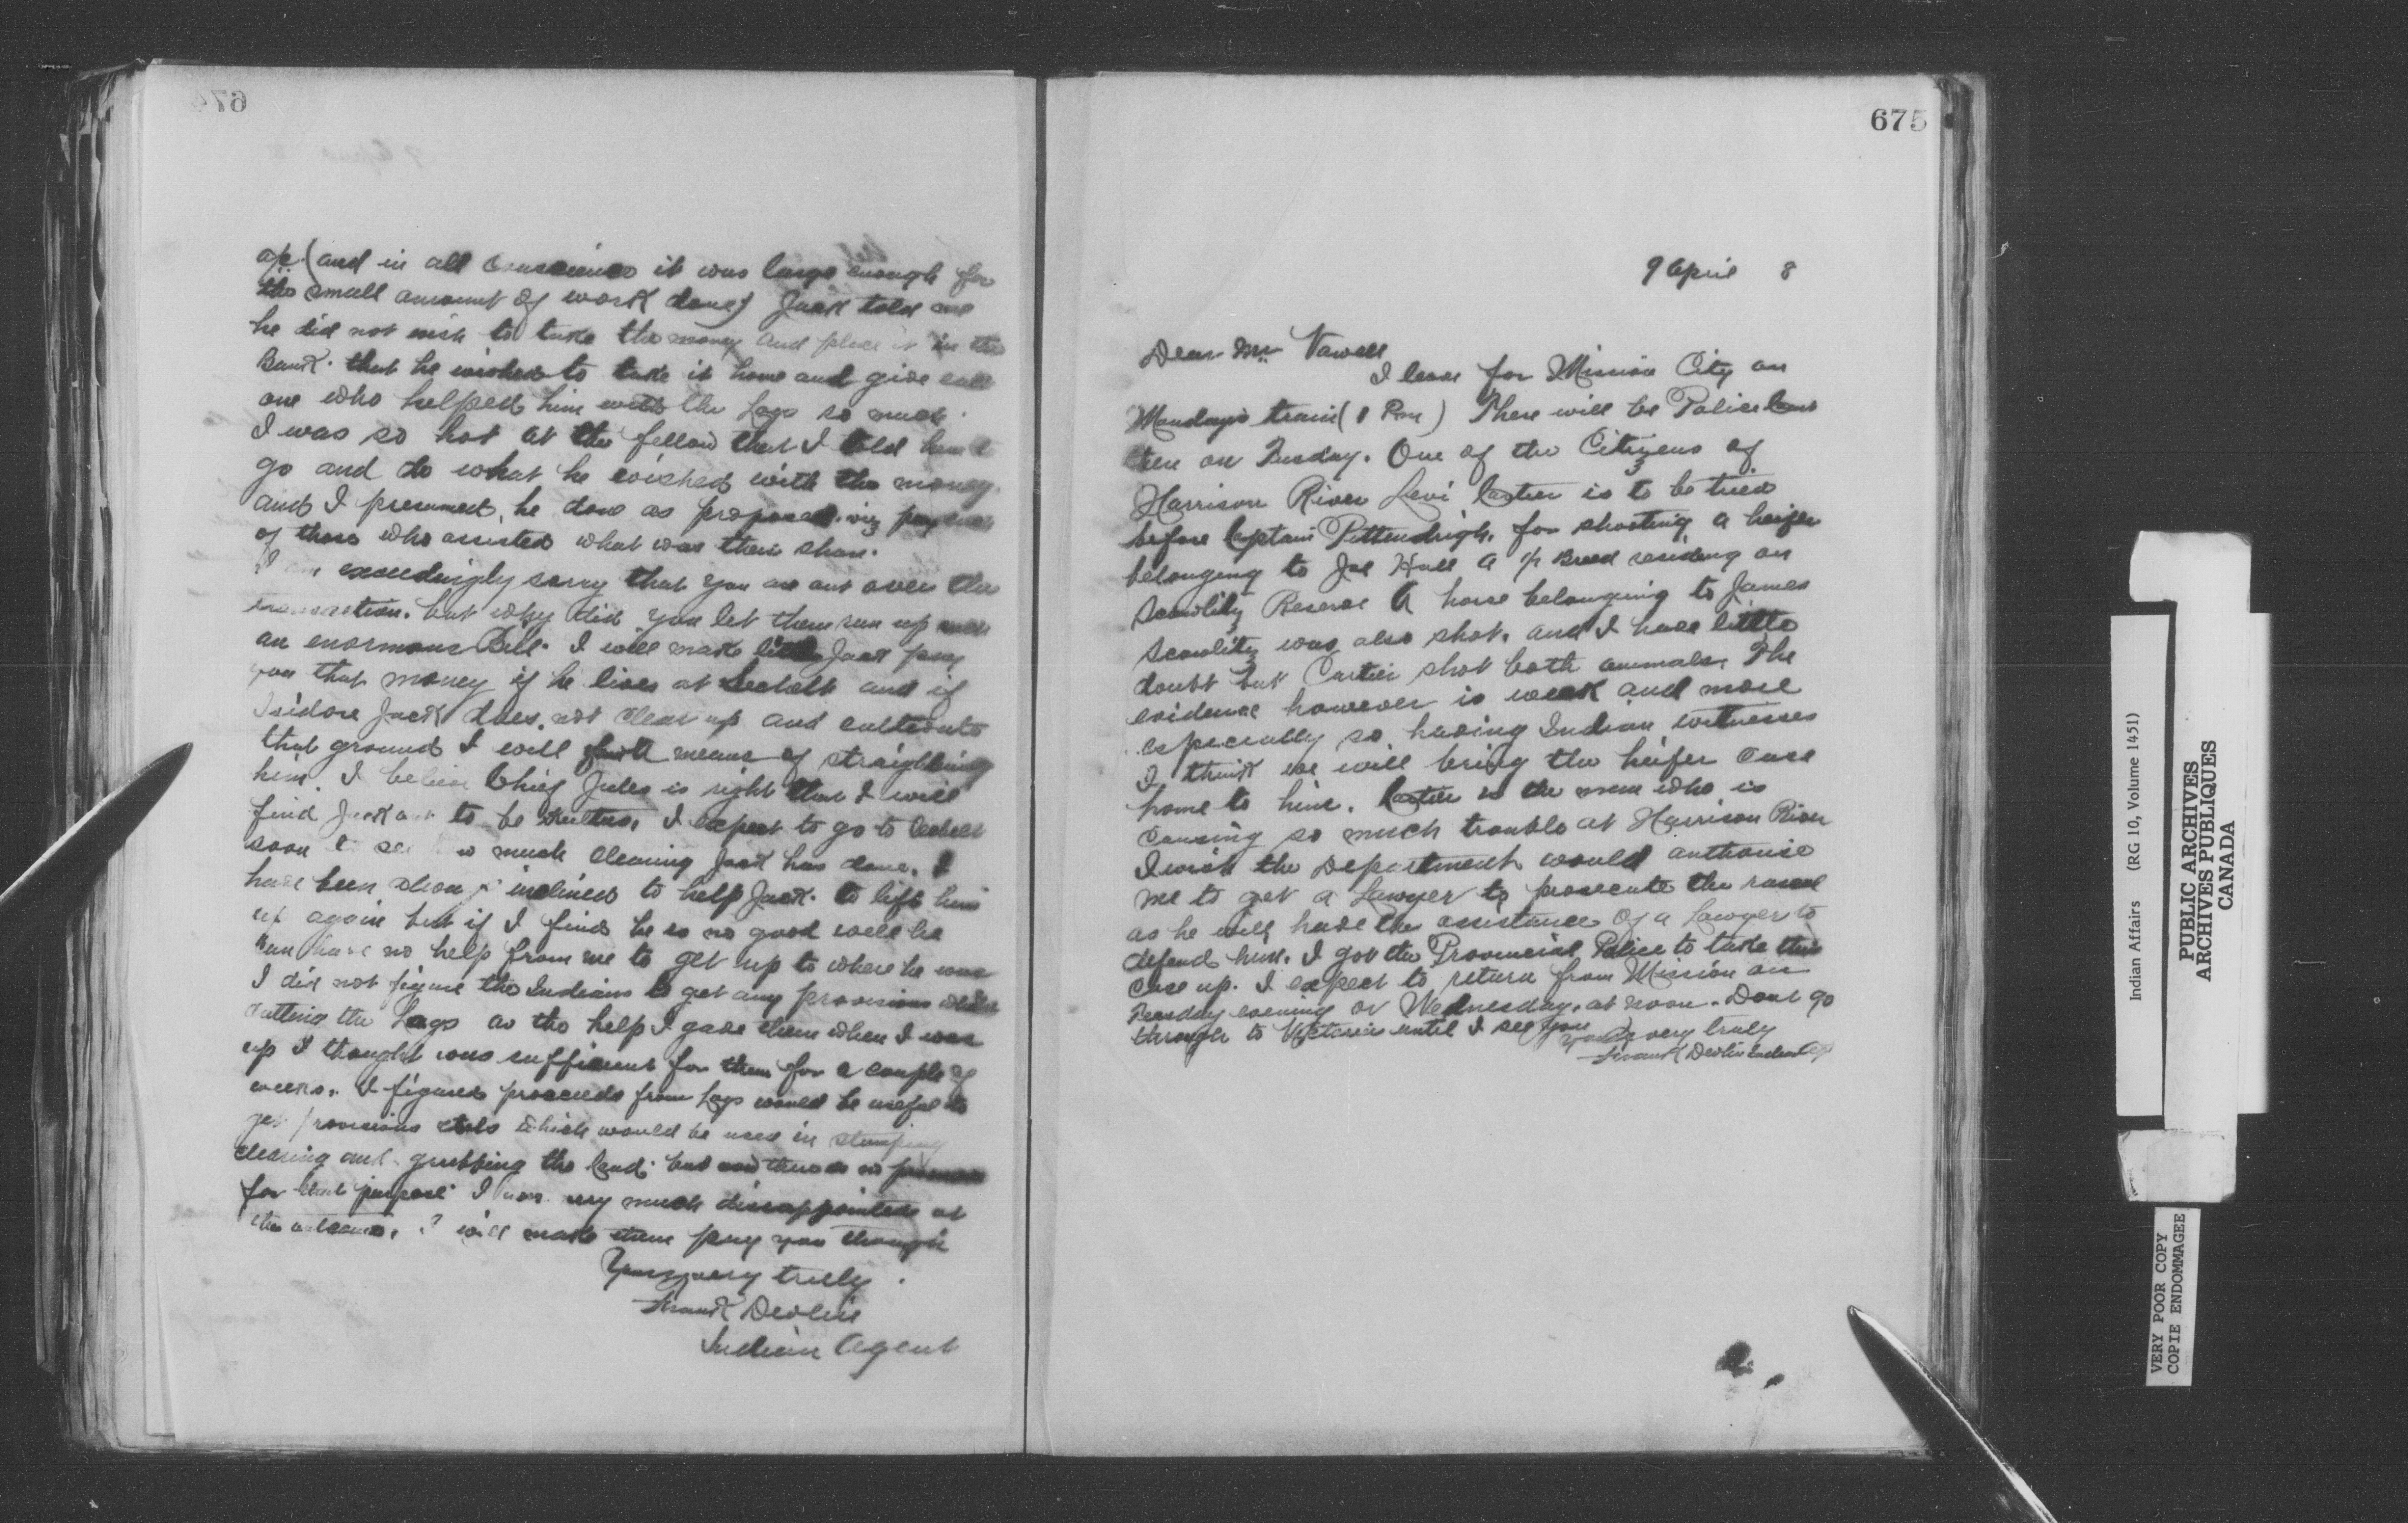 674
a/c (and in all conscience it was large enough for
the small amount of work done) Jack told me
he did not wish to take the money and place it in the
Bank. that he wished to take it home and give each
one who helped him with the Logs so much.
I was so hot at the fellow that I told him to
go and do what he wished with the money
and I presumed, he done as proposed. viz pay each
of those who assisted what was their share.
I am exceedingly sorry that you are out over the
transaction. but why did you let them run up such
an enormous Bill. I will make Jack pay
you that money if he lives at Sechelt and if
Isidore Jack does not clear up and cultivate
that ground I will find means of
him. I believe Chief Jules is right that I will
find Jack out to be I expect to go to Sechelt
soon to see how much clearing Jack has done. I
have been inclined to help Jack. to lift him
up again but if I find he is no good well he
can have no help from me to get up to where he was
I did not figure the Indians to get any provisions while
cutting the Logs as the help I gave them when I was
up I thought was sufficient for them for a couple of
weeks. I figured proceeds from Logs would be useful to
get provisions which would be used in stumping
clearing and grubbing the land. but now there is no
for that purpose. I am very much dissappointed at
the outcome. I will make them pay you though
Yours very truly.
Frank Devlin
Indian Agent
675
9 April 8
Dear Mr Vowell
I leave for Mission City on
Mondays train (1 Pm) There will be Police Court
there on Tuesday. One of the Citizens of
Harrison River Levi Cartier is to be tried
before Captain Pittendrigh. for shooting a heifer
belonging to Joe Hall a 1/2 Breed residing on
Scowlitz Reserve A horse belonging to James
Scowlitz was also shot. and I have little
doubt but Cartier shot both animals. The
evidence however is weak and more
especially so having Indian witnesses
I think we will bring the heifer case
home to him. Cartier is the man who is
causing so much trouble at Harrison River
I wish the Department would authorise
me to get a Lawyer to prosecute the rascal
as he will have the assistance of a Lawyer to
defend him. I got the Provincial Police to take this
case up. I expect to return from Mission on
Tuesday evening or Wednesday. at noon. Dont go
through to Victoria until I see you
Yours very truly
Frank Devlin Indian Agt
Indian Affairs (RG 10, Volume 1451)
PUBLIC ARCHIVES
ARCHIVES PUBLIQUES
CANADA
VERY POOR COPY
COPIE ENDOMMAGEE